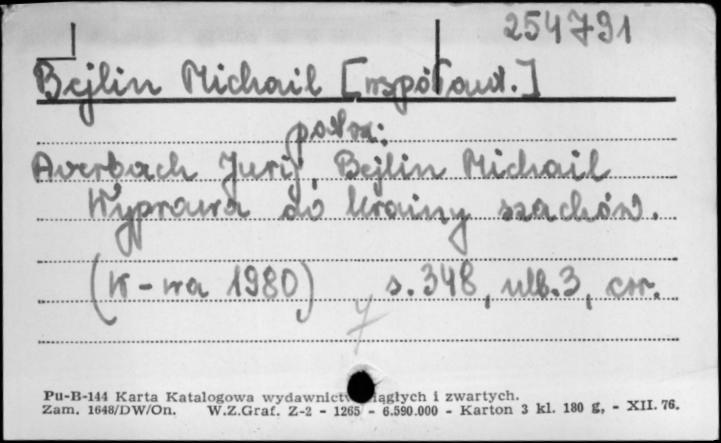 254791
Bejlin Michail [współaut.]
patrz:
Averbach Jurij, Bejlin Michail
Wyprawa do krainy szachów.
(W-wa 1980) s. 348, nlb. 3, err.
Pu-B-144 Karta Katalogowa wydawnictw ciągłych i zwartych.
Zam. 1648/DW/On. W.Z.Graf. Z-2 - 1265 - 6.590.000 - Karton 3 kl. 180 g, - XII. 76.